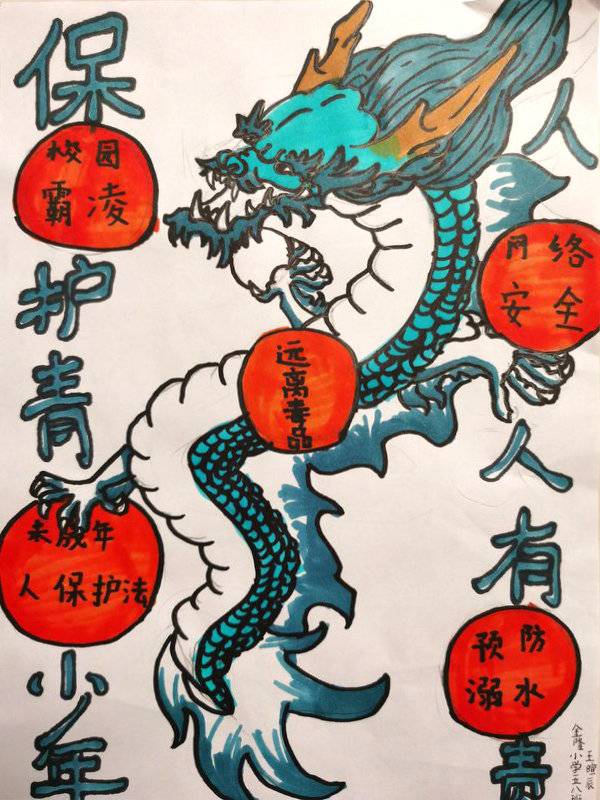 保护青少年
人人有责
校园
霸凌
网络
安全
远离毒品
未成年
人保护法
预防
溺水
小学